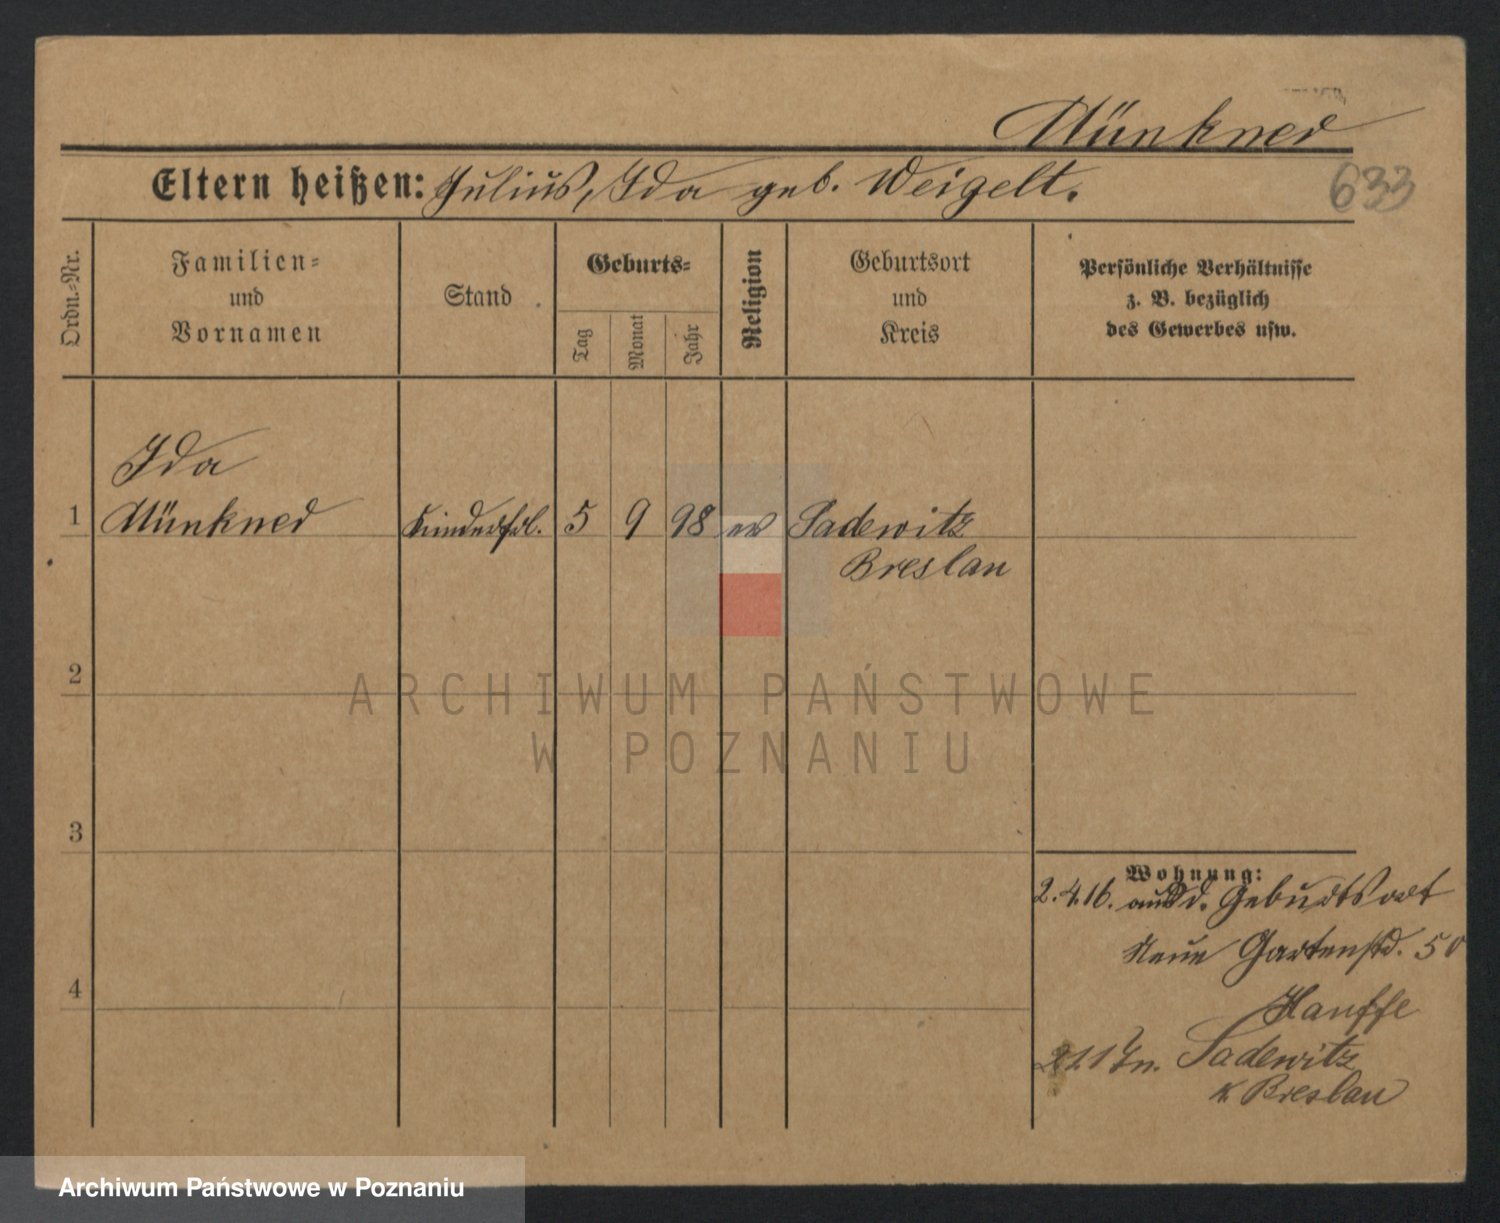 Münkner
633
Eltern heißen: Julius, Ida geb. Weigelt.
Ordn.-Nr.
Familien-
und
Vornamen
Stand
Geburts-
Tag
Monat
Jahr
Religion
Geburtsort
und
Kreis
Persönliche Verhältnisse
z. B. bezüglich
des Gewerbes usw.
Ida
1 Münkner Kinderfrl. 5 9 98 ev Sadewitz
Breslau
2
ARCHIWUM PAŃSTWOWE
W POZNANIU
3
Wohnung:
2.4.16. aus d. Geburtsort
Neue Gartenstr. 50
4
Hanffe
Sadewitz
K. Breslau
Archiwum Państwowe w Poznaniu